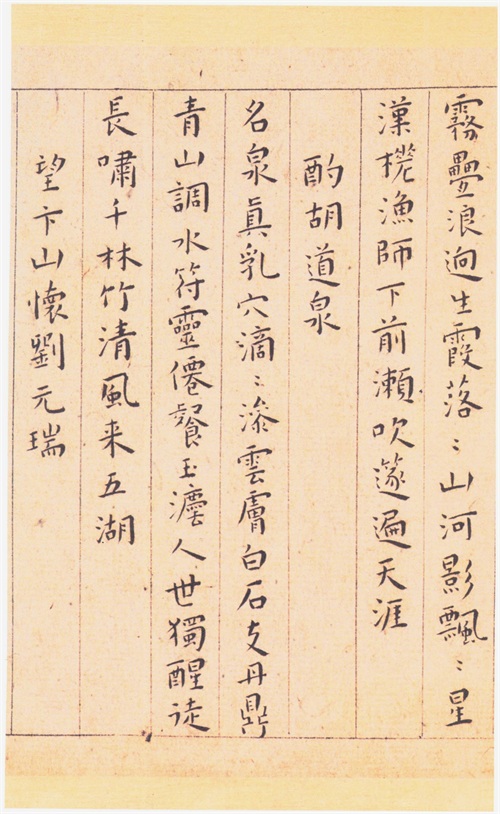 霧疊浪迥生霞落〻山河影飄〻星
漢槎漁師下前瀬吹篴遍天涯
酌胡道泉
名泉真乳穴滴〻滲雲膚白石支丹鼎
青山調水符靈僊餐玉瀣人世獨醒徒
長嘯千林竹清風来五湖
望卞山懷劉元瑞